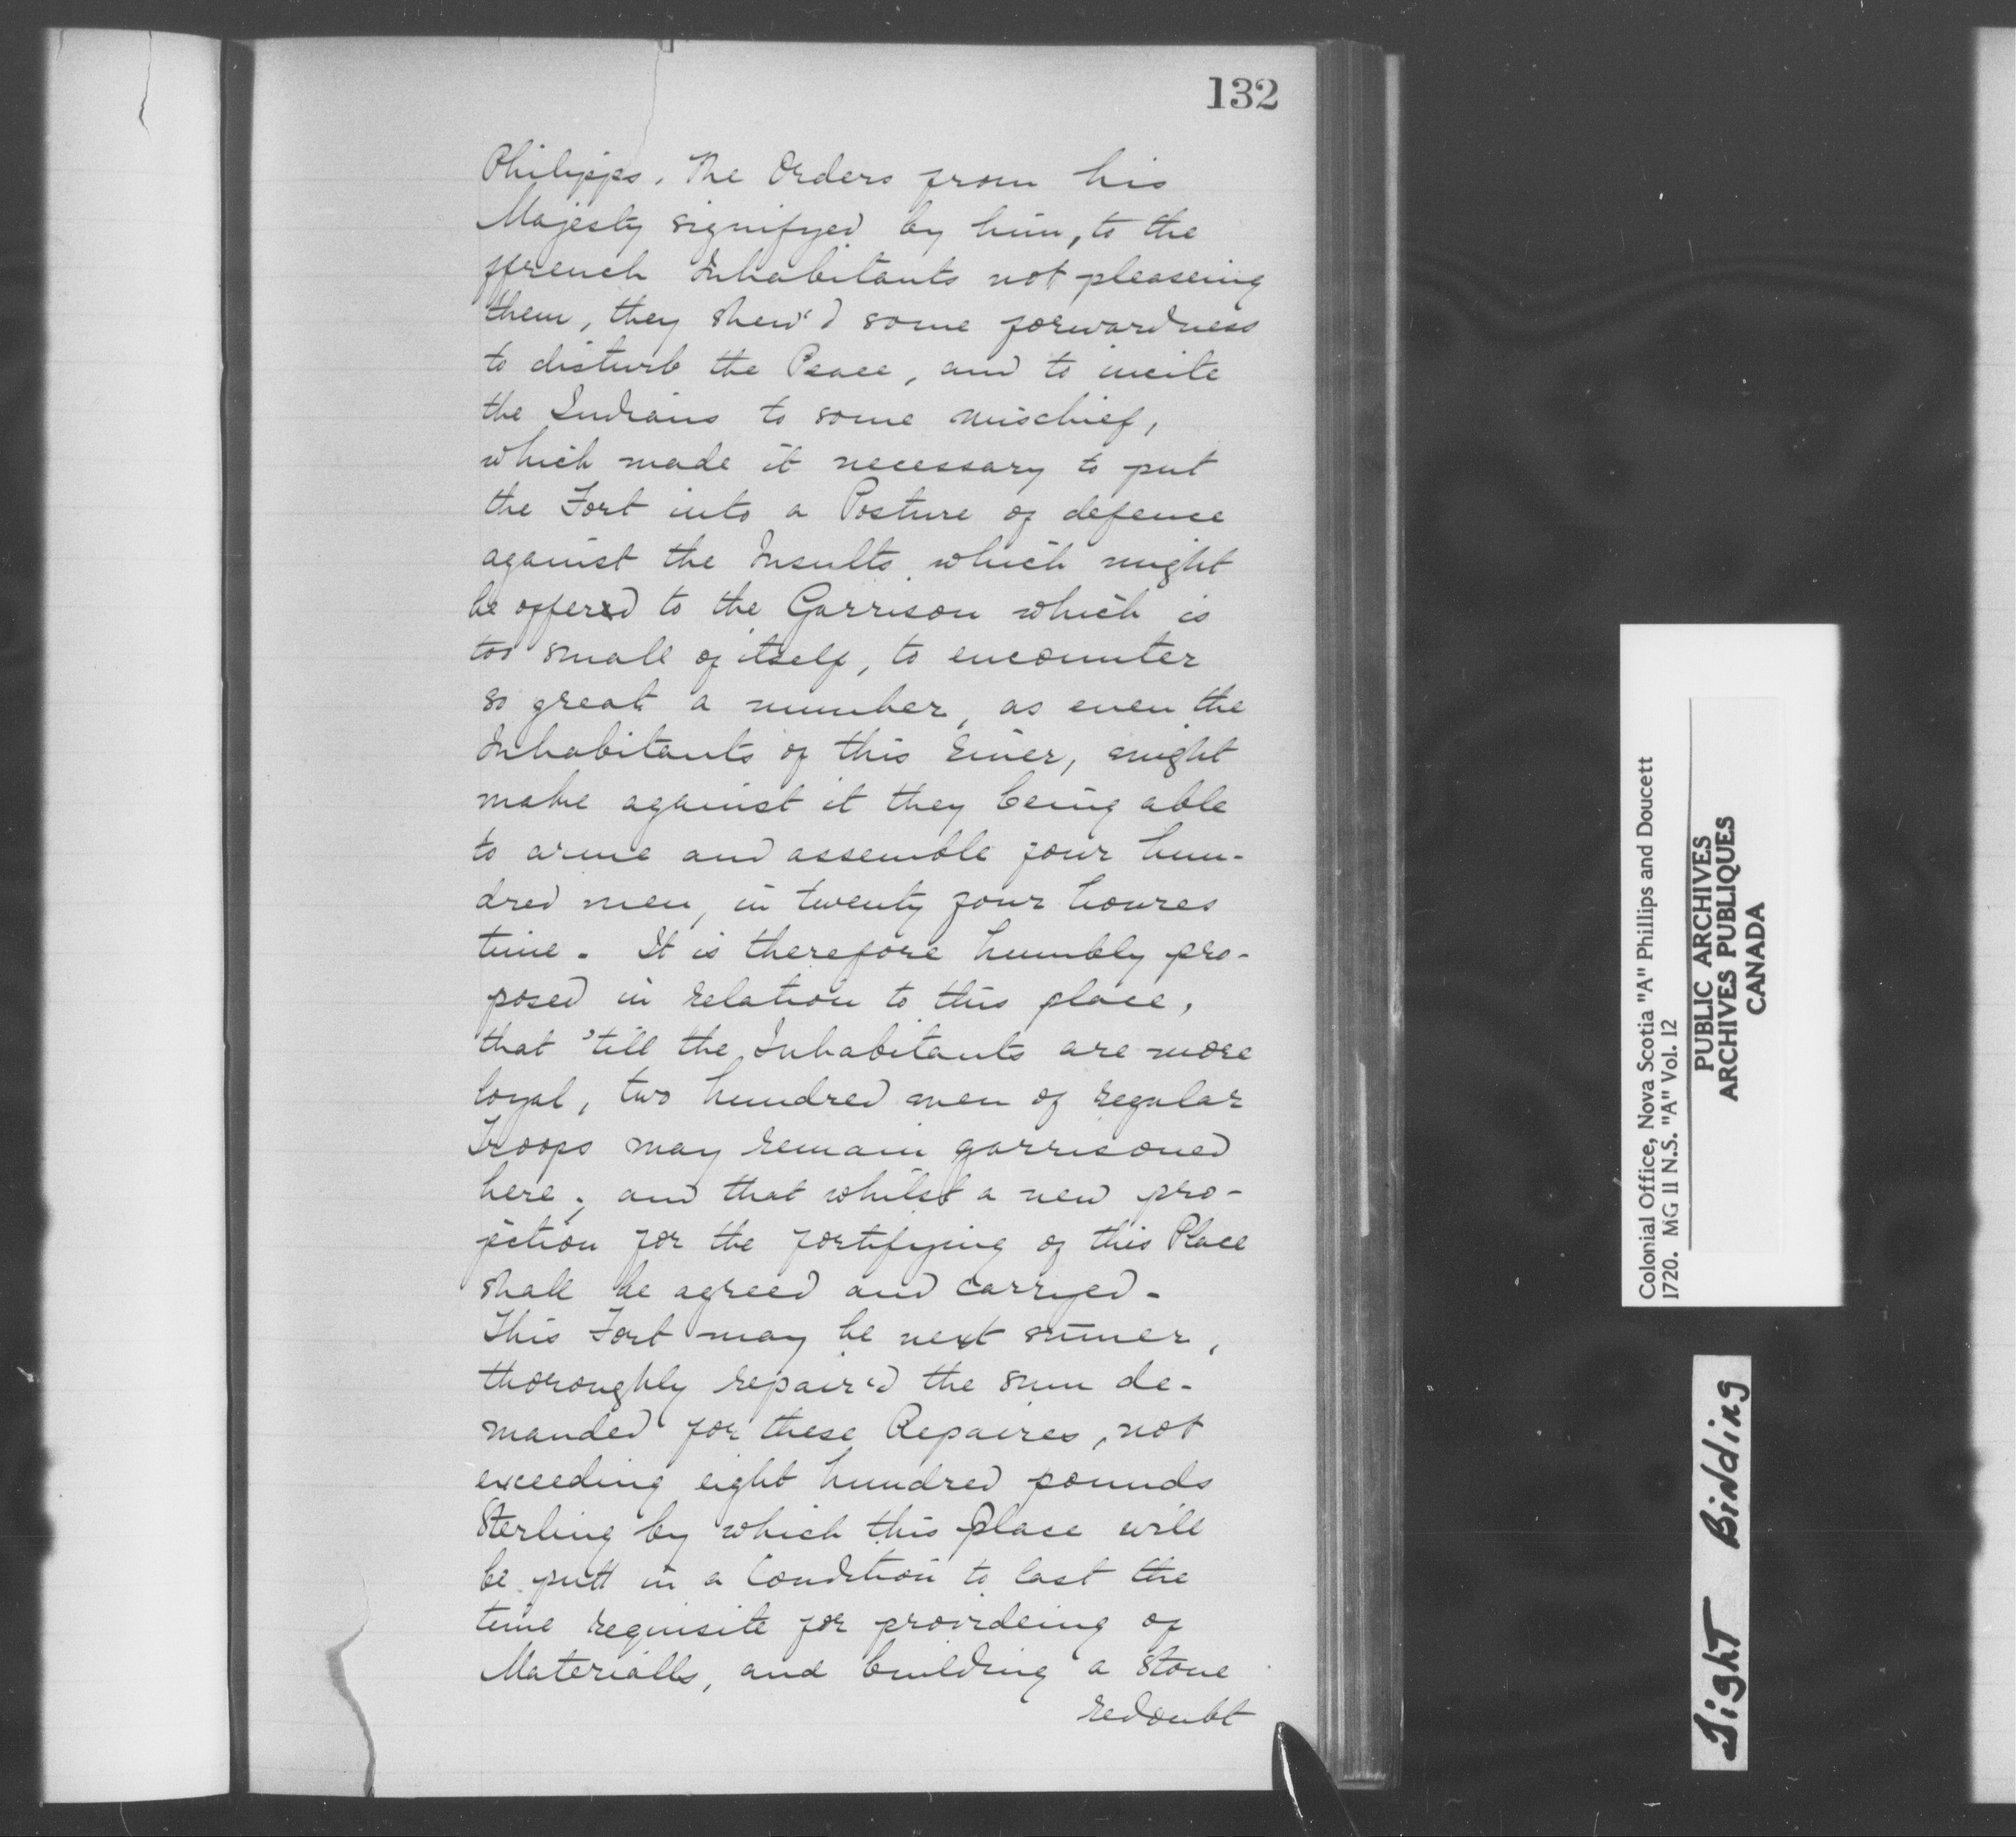 132
Philipps. The Orders from his
Majesty signifyed by him, to the
ffrench Inhabitants not pleaseing
them, they shew'd some forwardness
to disturb the Peace, and to incite
the Indians to some mischief,
which made it necessary to put
the Fort into a Posture of defence
against the Insults which might
be offered to the Garrison which is
too small of itself, to encounter
so great a number, as even the
Inhabitants of this River, might
make against it they being able
to arme and assemble four hun-
dred men, in twenty four houres
time. It is therefore humbly pro-
posed in relation to this place,
that 'till the Inhabitants are more
loyal, two hundred men of regular
Troops may remain garrisoned
here; and that whilst a new pro-
jection for the fortifying of this Place
shall be agreed and carryed.
This Fort may be next sumer,
thoroughly repair'd the sum de-
manded for these Repaires, not
exceeding eight hundred pounds
Sterling by which this place will
be putt in a Condition to last the
time requisite for provideing of
Materialls, and building a Stone
redoubt
Colonial Office, Nova Scotia "A" Phillips and Doucett
1720. MG 11 N.S. "A" Vol. 12
PUBLIC ARCHIVES
ARCHIVES PUBLIQUES
CANADA
Tight Binding